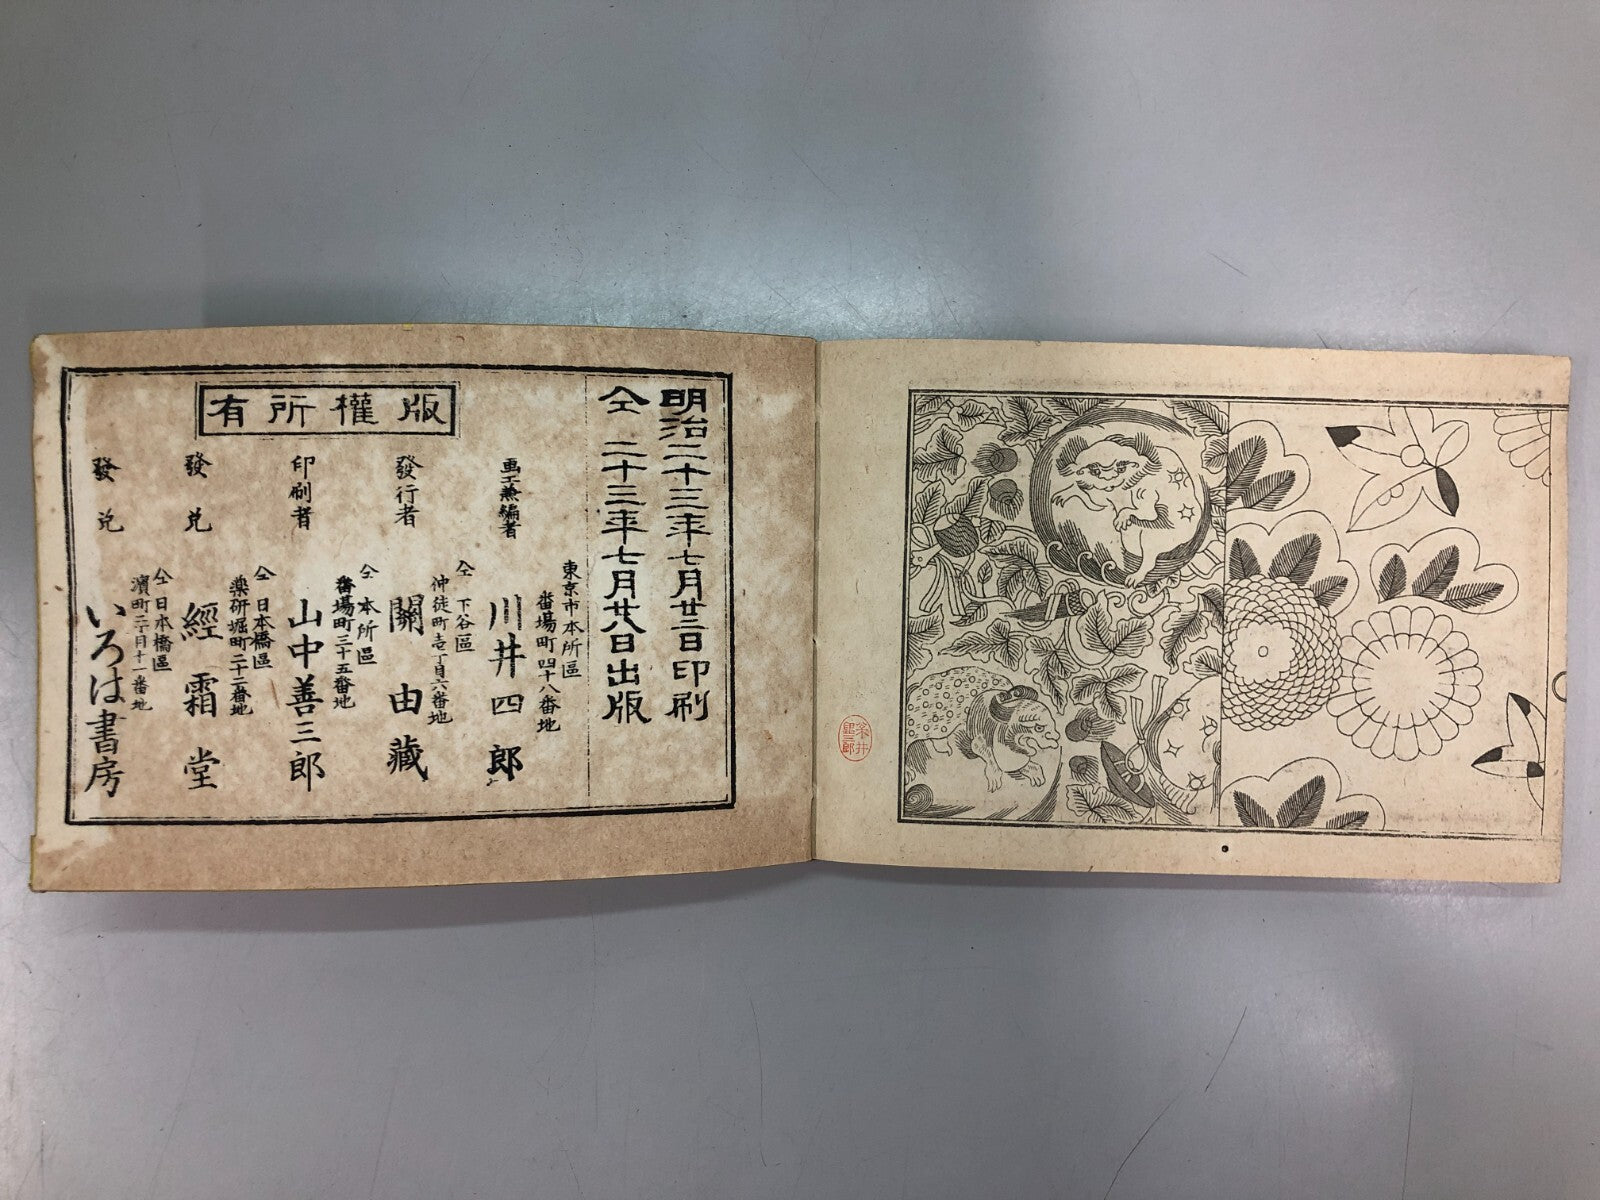 明治二十三年七月廿二日印刷
仝 二十三年七月廿八日出版
版權所有
東京市本所區
番場町四十八番地
画工兼編者
川井四郎
仝下谷區
仲徒町壱丁目六番地
發行者
關由藏
仝本所區
番場町三十五番地
印刷者
山中善三郎
仝日本橋區
薬研堀町二十二番地
發兌
經霜堂
仝日本橋區
濱町二丁目十一番地
發兌
いろは書房